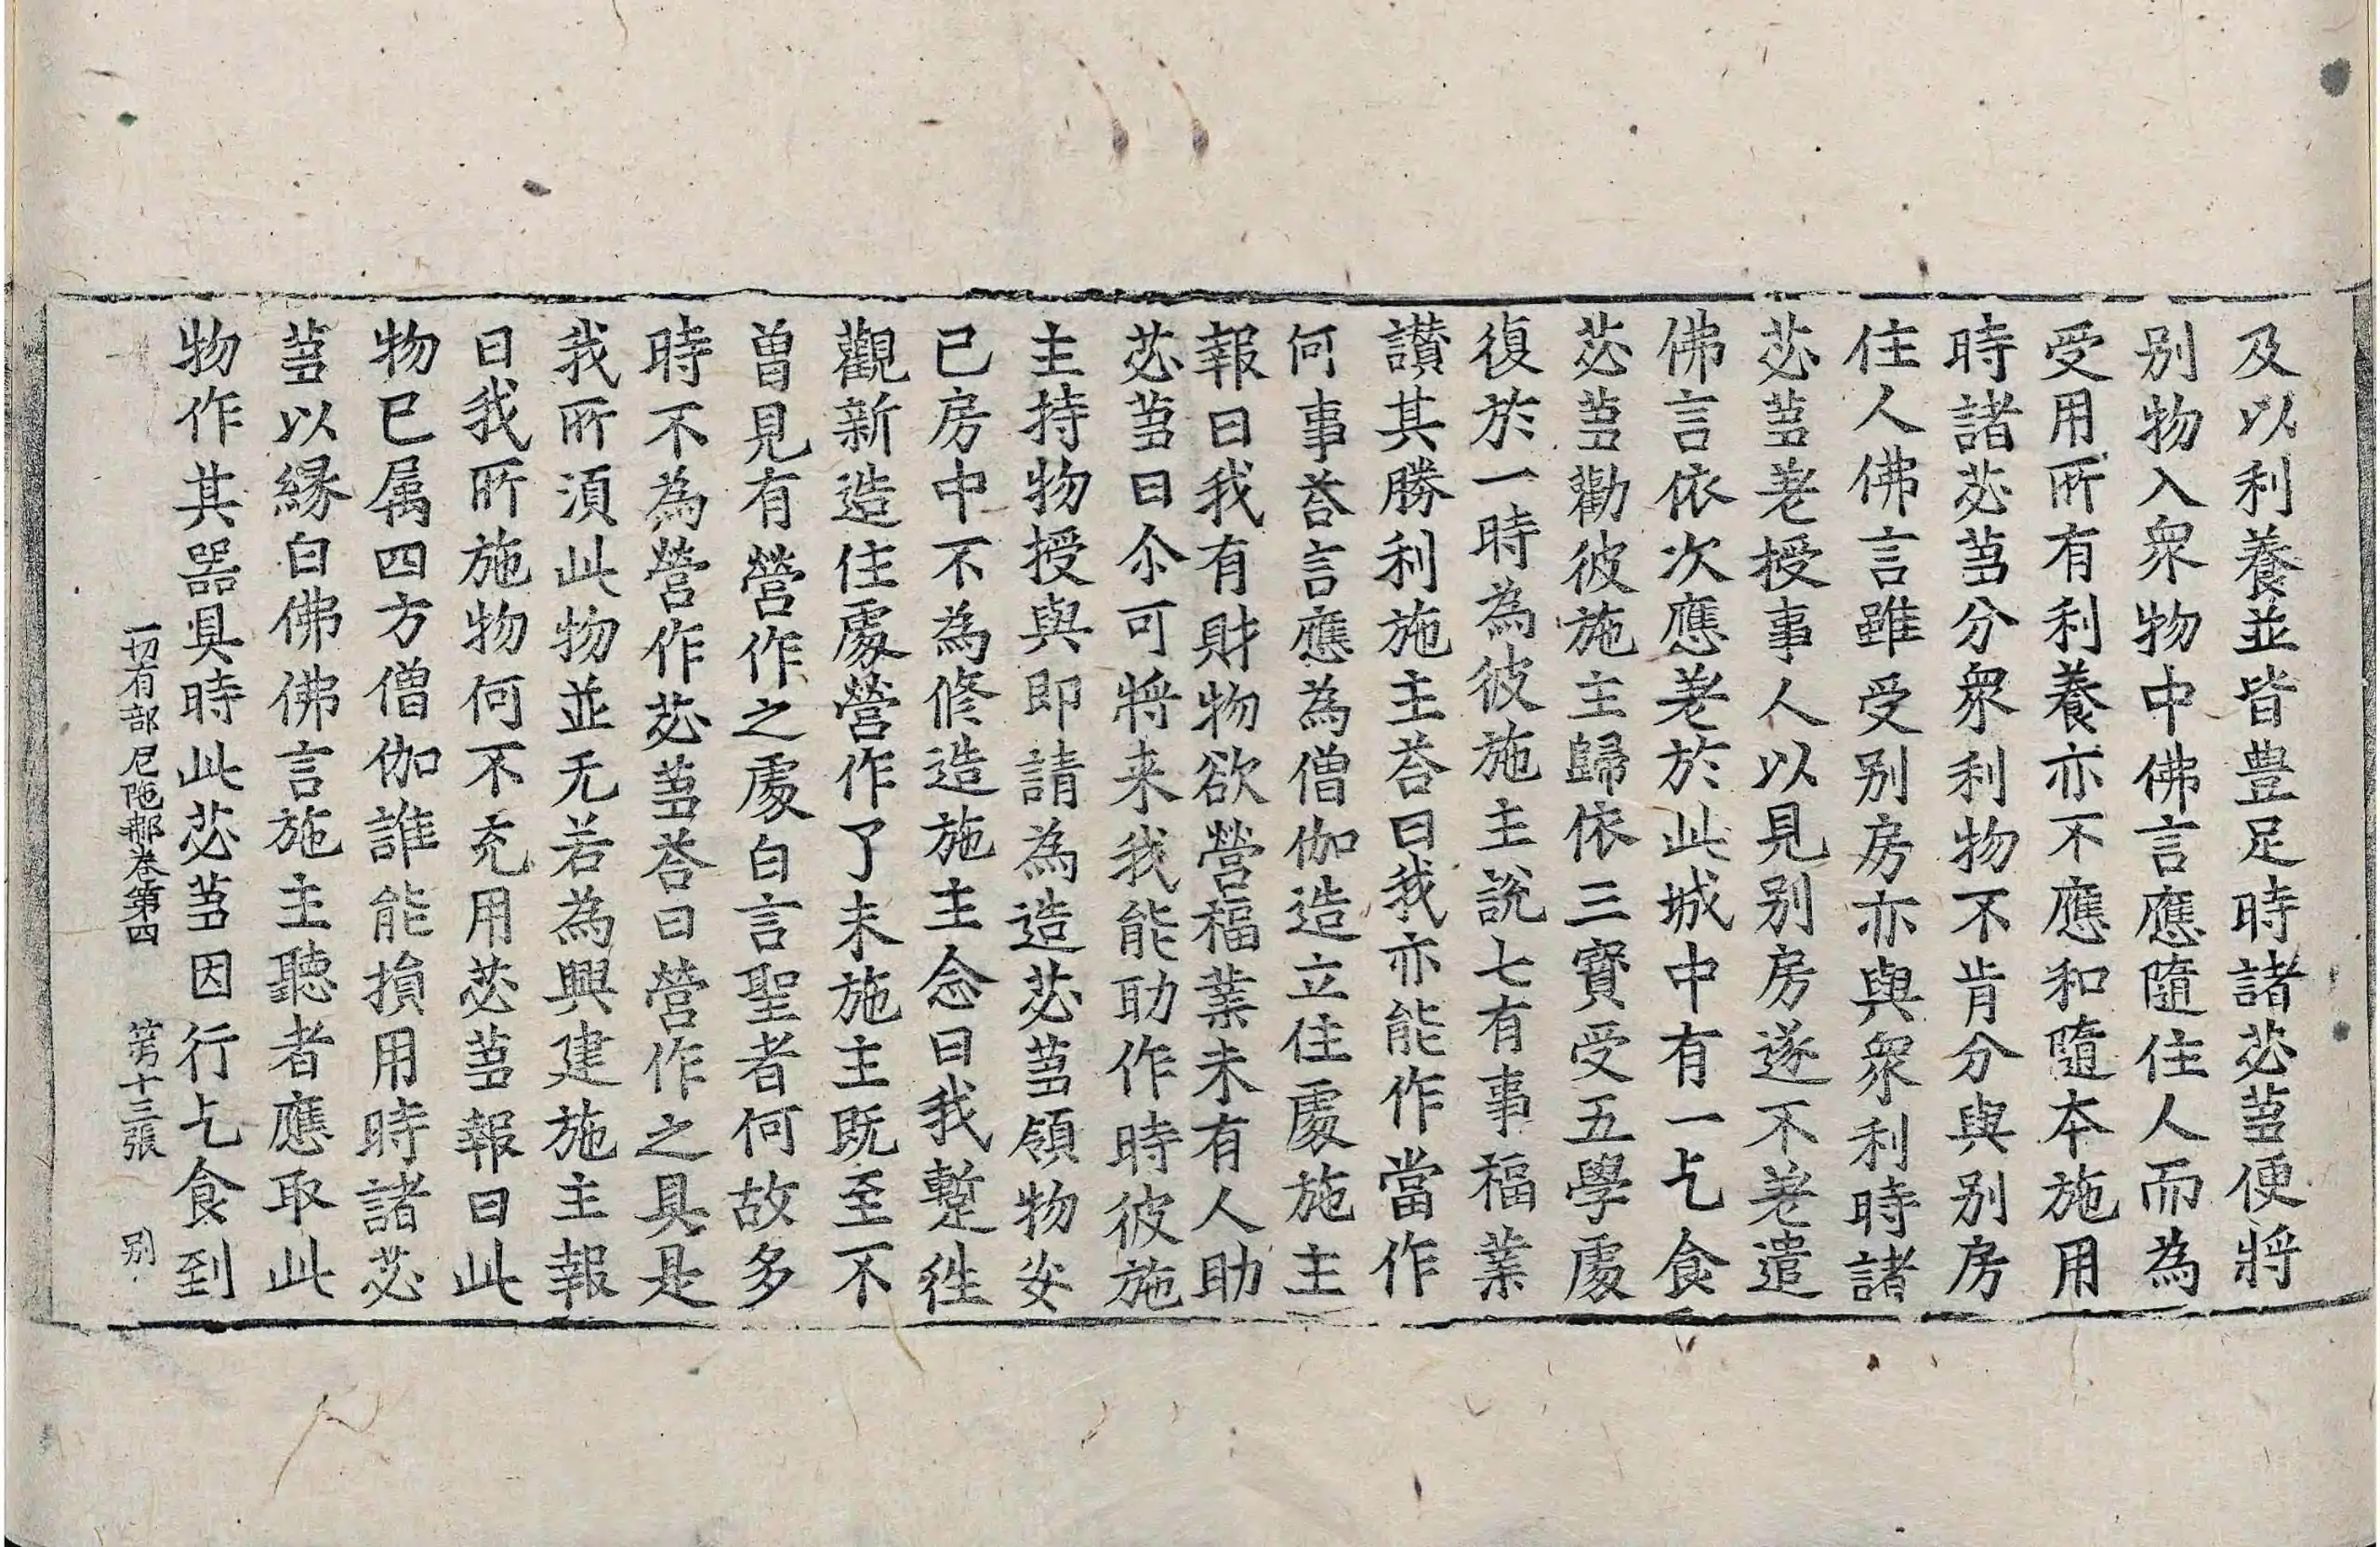 及以利養並皆豊足時諸苾芻便將
别物入衆物中佛言應隨住人而為
受用所有利養亦不應和隨本施用
時諸苾芻分衆利物不肯分與别房
住人佛言雖受别房亦與衆利時諸
苾芻差授事人以見别房遂不差遣
佛言依次應差於此城中有一乞食
苾芻勸彼施主歸依三寶受五學處
復於一時為彼施主說七有事福業
讃其勝利施主荅曰我亦能作當作
何事荅言應為僧伽造立住處施主
報曰我有財物欲營福業未有人助
苾芻曰尒可將来我能助作時彼施
主持物授與即請為造苾芻領物安
已房中不為修造施主念曰我蹔往
觀新造住處營作了未施主既至不
曽見有營作之處白言聖者何故多
時不為營作苾芻荅曰營作之具是
我所須此物並无若為興建施主報
曰我所施物何不充用苾芻報曰此
物已属四方僧伽誰能損用時諸苾
芻以縁白佛佛言施主聽者應取此
物作其器具時此苾芻因行乞食到
一切有部尼陁那卷第四　第十三張　别